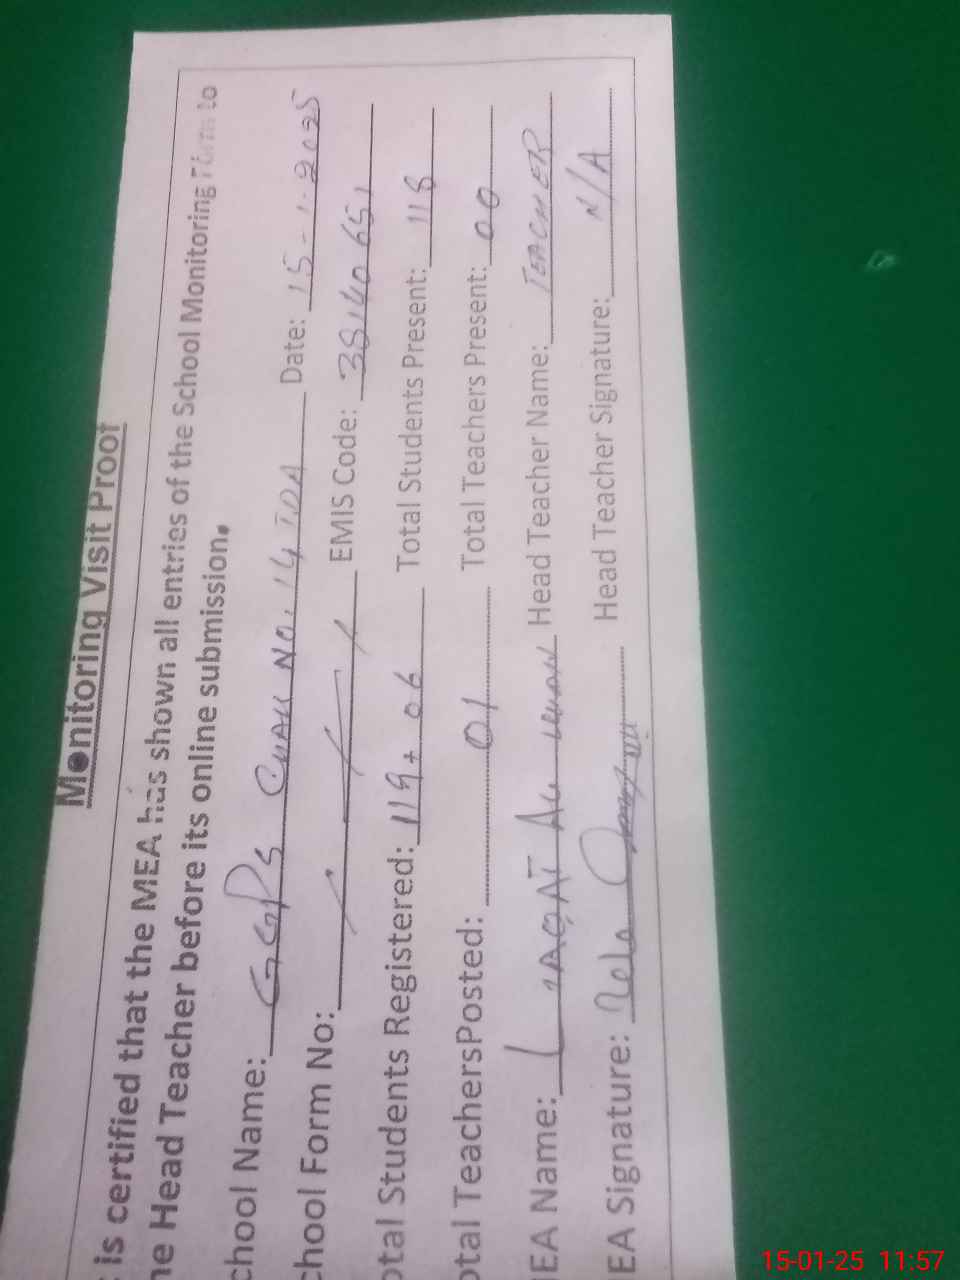 Monitoring Visit Proof
is certified that the MEA has shown all entries of the School Monitoring Form to
he Head Teacher before its online submission.
chool Name: GGPS CHAK NO. 14 TDA Date: 15-1-2025
chool Form No: EMIS Code: 38140651
otal Students Registered: 119+06 Total Students Present: 118
otal TeachersPosted: 01 Total Teachers Present: 00
MEA Name: LIAQAT ALI Head Teacher Name: TEACHER
EA Signature: Head Teacher Signature: N/A
15-01-25 11:57